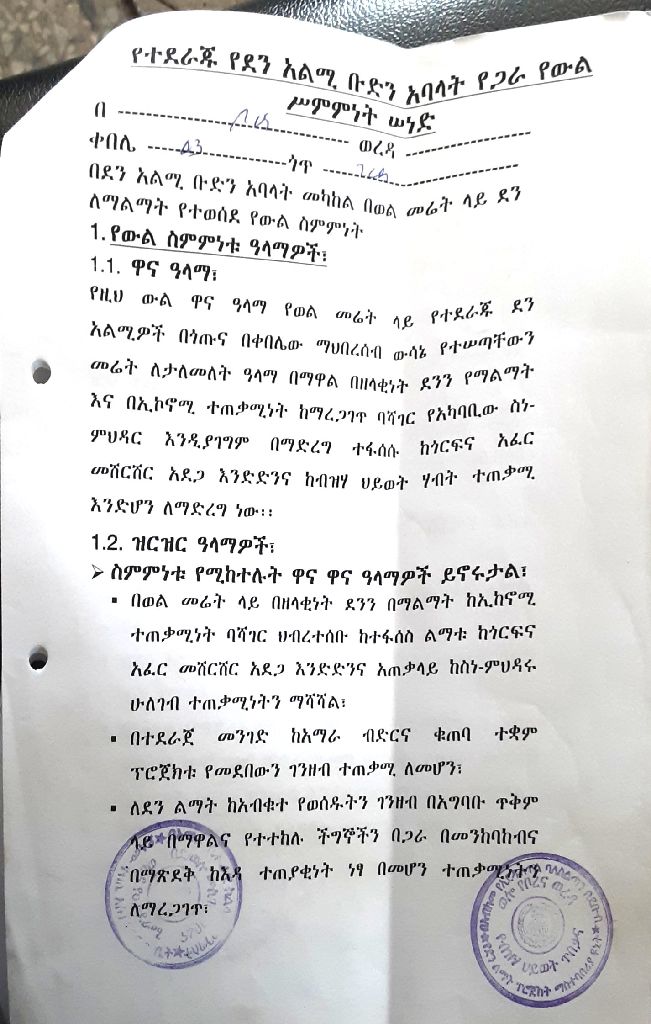 የተደራጁ የደን አልሚ ቡድን አባላት የጋራ የውል
ሥምምነት ሠነድ
በ ወረዳ
ቀበሌ ጎጥ
በደን አልሚ ቡድን አባላት መካከል በወል መሬት ላይ ደን
ለማልማት የተወሰደ የውል ስምምነት
1. የውል ስምምነቱ ዓላማዎች፣
1.1. ዋና ዓላማ፣
የዚህ ውል ዋና ዓላማ የወል መሬት ላይ የተደራጁ ደን
አልሚዎች በጎጡና በቀበሌው ማህበረሰብ ውሳኔ የተሠጣቸውን
መሬት ለታለመለት ዓላማ በማዋል በዘላቂነት ደንን የማልማት
እና በኢኮኖሚ ተጠቃሚነት ከማረጋገጥ ባሻገር የአካባቢው ስነ-
ምህዳር እንዲያገግም በማድረግ ተፋሰሱ ከጎርፍና አፈር
መሸርሸር አደጋ እንድድንና ከብዝሃ ህይወት ሃብት ተጠቃሚ
እንድሆን ለማድረግ ነው፡፡
1.2. ዝርዝር ዓላማዎች፣
➢ ስምምነቱ የሚከተሉት ዋና ዋና ዓላማዎች ይኖሩታል፣
▪ በወል መሬት ላይ በዘላቂነት ደንን በማልማት ከኢከኖሚ
ተጠቃሚነት ባሻገር ህብረተሰቡ ከተፋሰስ ልማቱ ከጎርፍና
አፈር መሸርሸር አደጋ እንድድንና አጠቃላይ ከስነ-ምህዳሩ
ሁለገብ ተጠቃሚነትን ማሻሻል፣
▪ በተደራጀ መንገድ ከአማራ ብድርና ቁጠባ ተቋም
ፕሮጀክቱ የመደበውን ገንዘብ ተጠቃሚ ለመሆን፣
▪ ለደን ልማት ከአብቁተ የወሰዱትን ገንዘብ በአግባቡ ጥቅም
ላይ በማዋልና የተተከሉ ችግኞችን በጋራ በመንከባከብና
በማጽደቅ ከእዳ ተጠያቂነት ነፃ በመሆን ተጠቃሚነትን
ለማረጋገጥ፣